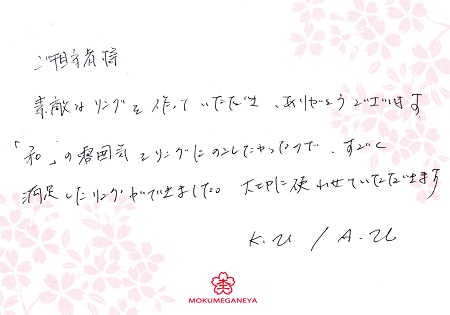 ご担当者様
素敵なリングを作っていただき、ありがとうございます
「和」の雰囲気をリングにのこしたかったので、すごく
満足したリングができました。大切に使わせていただきます
K.U / A.U
MOKUMEGANEYA